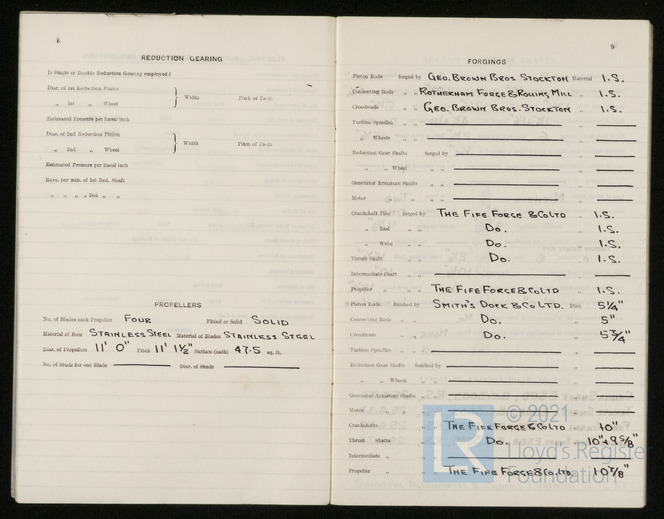 8
REDUCTION GEARING
Is Single or Double Reduction Gearing employed?
Diar. of 1st Reduction Pinion
Width Pitch of Teeth
„ 1st „ Wheel
Estimated Pressure per lineal inch
Diar. of 2nd Reduction Pinion
Width Pitch of Teeth
„ 2nd „ Wheel
Estimated Pressure per lineal inch
Revs. per min. of 1st Red. Shaft
„ „ „ 2nd „ „
PROPELLERS
No. of Blades each Propeller FOUR Fitted or Solid SOLID
Material of Boss STAINLESS STEEL Material of Blades STAINLESS STEEL
Diar. of Propellers 11' 0" Pitch 11' 1½" Surface (each) 47.5 sq. ft.
No. of Studs for one Blade Diar. of Studs
9
FORGINGS
Piston Rods forged by GEO. BROWN BROS STOCKTON Material I.S.
Connecting Rods „ „ ROTHERHAM FORGE & ROLLING MILL „ I.S.
Crossheads „ „ GEO. BROWN BROS. STOCKTON „ I.S.
Turbine Spindles „ „
„ Wheels „ „
Reduction Gear Shafts forged by
„ „ Wheel „ „
Generator Armature Shafts „ „
Motor „ „
Crankshaft Pins forged by THE FIFE FORGE & CO LTD „ I.S.
„ Rod „ „ DO. „ I.S.
„ Webs „ „ DO. „ I.S.
Thrust Shaft „ „ DO. „ I.S.
Intermediate Shaft „ „
Propeller „ „ THE FIFE FORGE & CO LTD „ I.S.
Piston Rods finished by SMITH'S DOCK & CO LTD. Diar. 5¼"
Connecting Rods „ „ DO. „ 5"
Crossheads „ „ DO. „ 5¾"
Turbine Spindles „ „
Reduction Gear Shafts finished by
„ „ Wheels „ „
Generator Armature Shafts „ „
Motor „ „
Crankshafts „ „ THE FIFE FORGE & CO LTD „ 10"
Thrust Shafts „ „ DO. „ 10" & 9⅝"
Intermediate „ „
Propeller „ „ THE FIFE FORGE & CO. LTD. „ 10⅞"
LR
© 2021
Lloyd's Register
Foundation